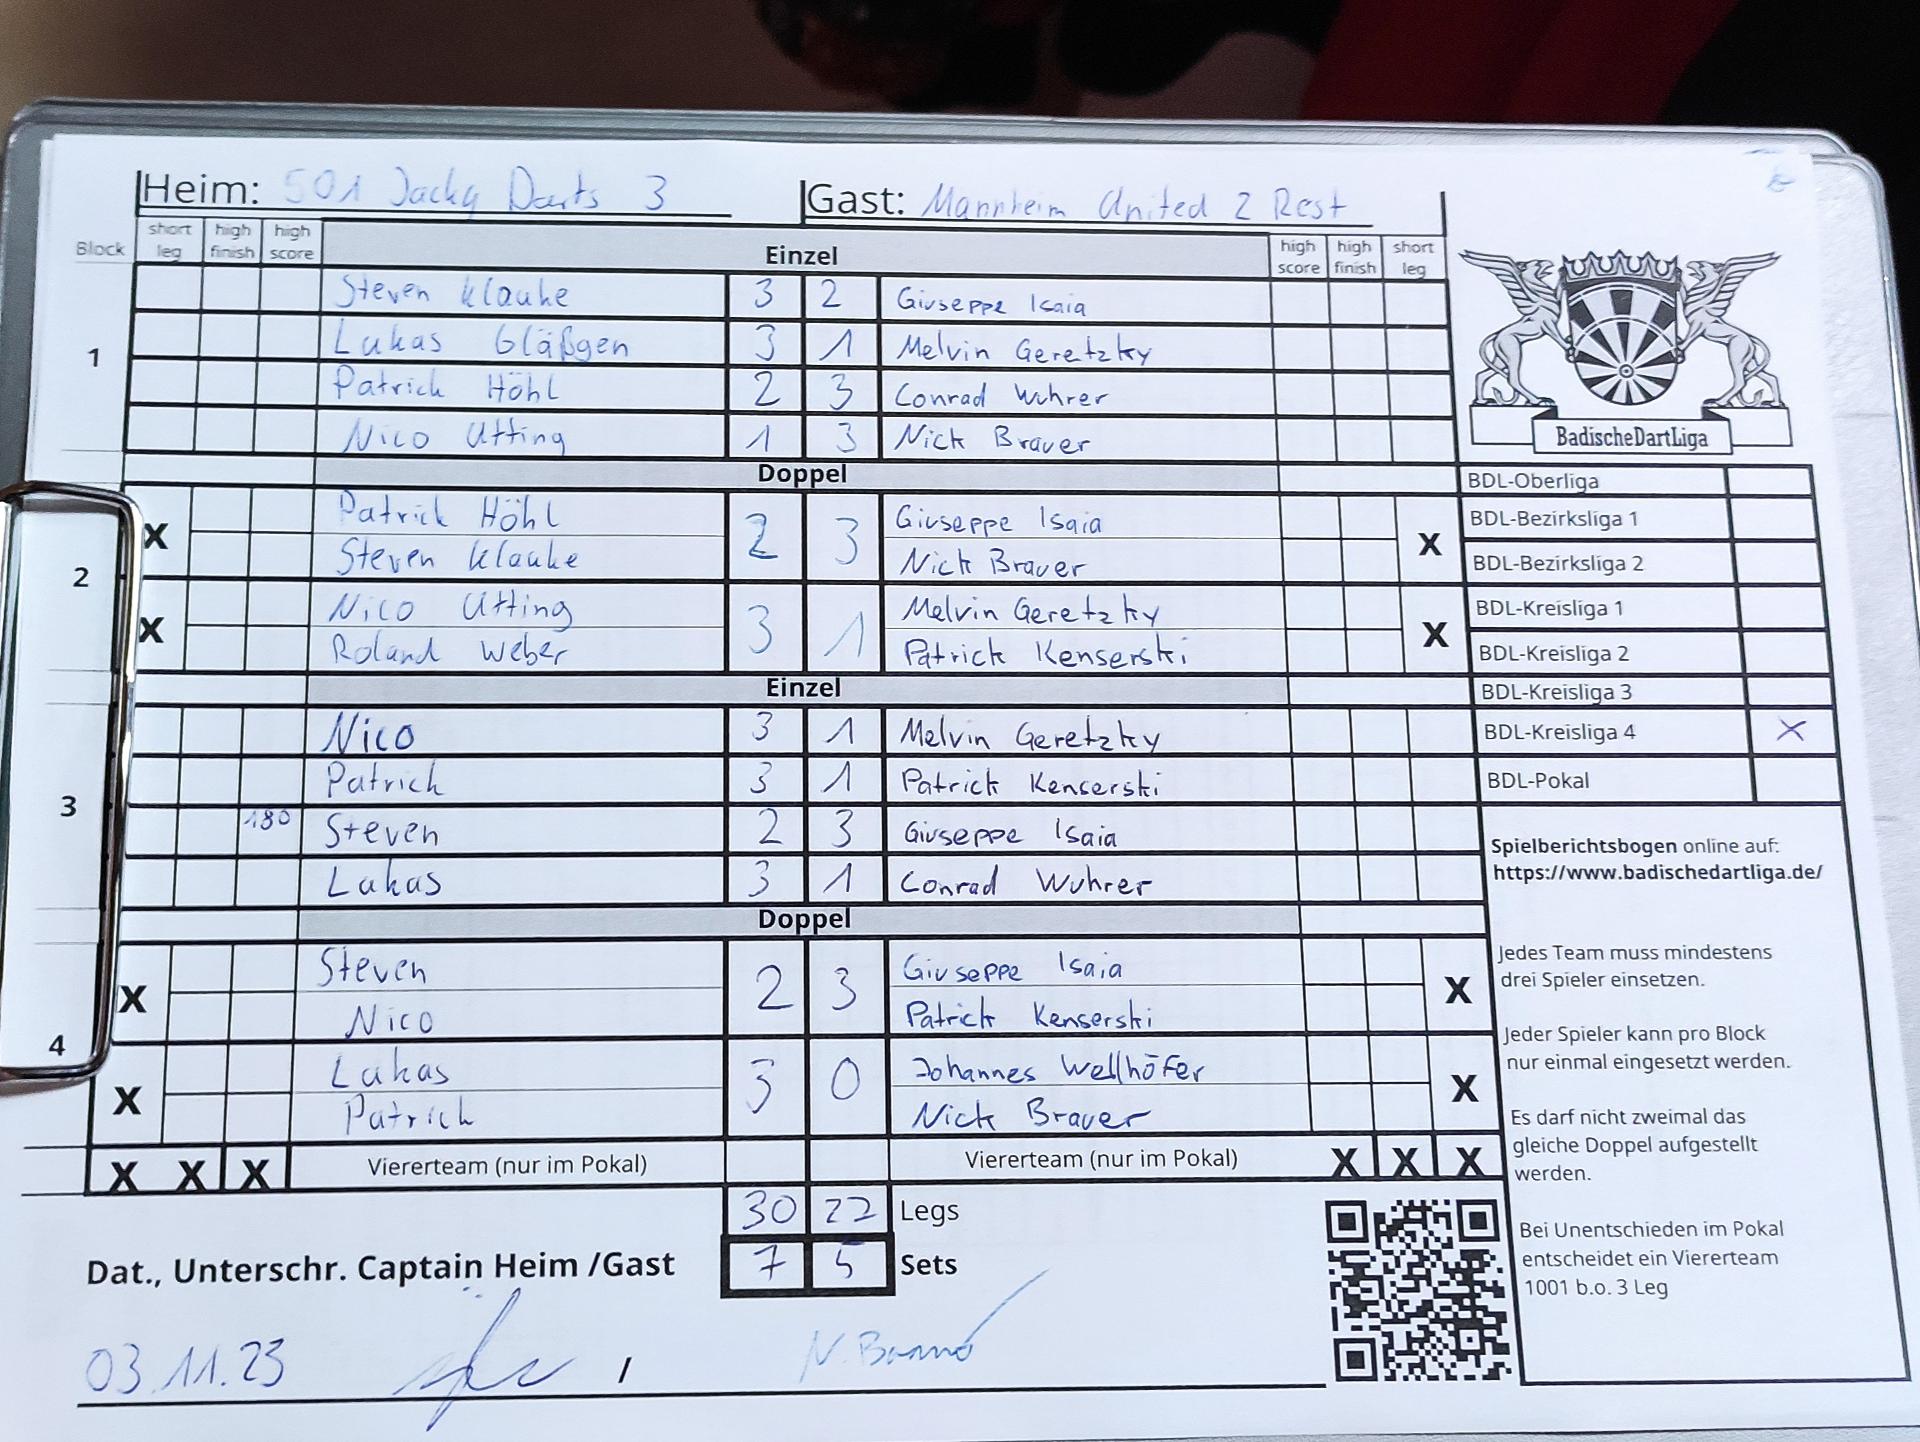 Heim: 501 Jacky Darts 3 Gast: Mannheim United 2 Rest
Block short leg high finish high score Einzel high score high finish short leg
1
Steven Klauke 3 2 Giuseppe Isaia
Lukas Gläßgen 3 1 Melvin Geretzky
Patrick Höhl 2 3 Conrad Wuhrer
Nico Utting 1 3 Nick Brauer
Doppel
2
X Patrick Höhl 2 3 Giuseppe Isaia X
Steven Klauke Nick Brauer
X Nico Utting 3 1 Melvin Geretzky X
Roland Weber Patrick Kenserski
Einzel
3
Nico 3 1 Melvin Geretzky
Patrick 3 1 Patrick Kenserski
180 Steven 2 3 Giuseppe Isaia
Lukas 3 1 Conrad Wuhrer
Doppel
4
X Steven 2 3 Giuseppe Isaia X
Nico Patrick Kenserski
X Lukas 3 0 Johannes Wellhöfer X
Patrick Nick Brauer
X X X Viererteam (nur im Pokal) Viererteam (nur im Pokal) X X X
30 22 Legs
7 5 Sets
Dat., Unterschr. Captain Heim /Gast
03.11.23 /
BadischeDartLiga
BDL-Oberliga
BDL-Bezirksliga 1
BDL-Bezirksliga 2
BDL-Kreisliga 1
BDL-Kreisliga 2
BDL-Kreisliga 3
BDL-Kreisliga 4 X
BDL-Pokal
Spielberichtsbogen online auf:
https://www.badischedartliga.de/
Jedes Team muss mindestens
drei Spieler einsetzen.
Jeder Spieler kann pro Block
nur einmal eingesetzt werden.
Es darf nicht zweimal das
gleiche Doppel aufgestellt
werden.
Bei Unentschieden im Pokal
entscheidet ein Viererteam
1001 b.o. 3 Leg